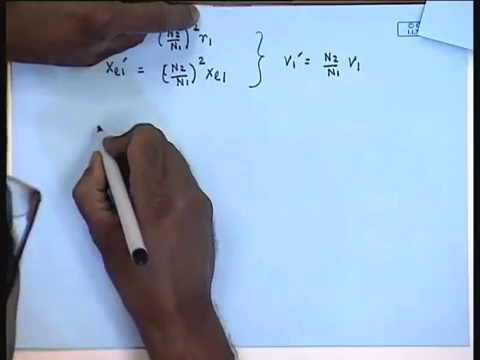 (N2/N1)² r1
Xe1' = (N2/N1)² Xe1 } V1' = N2/N1 V1